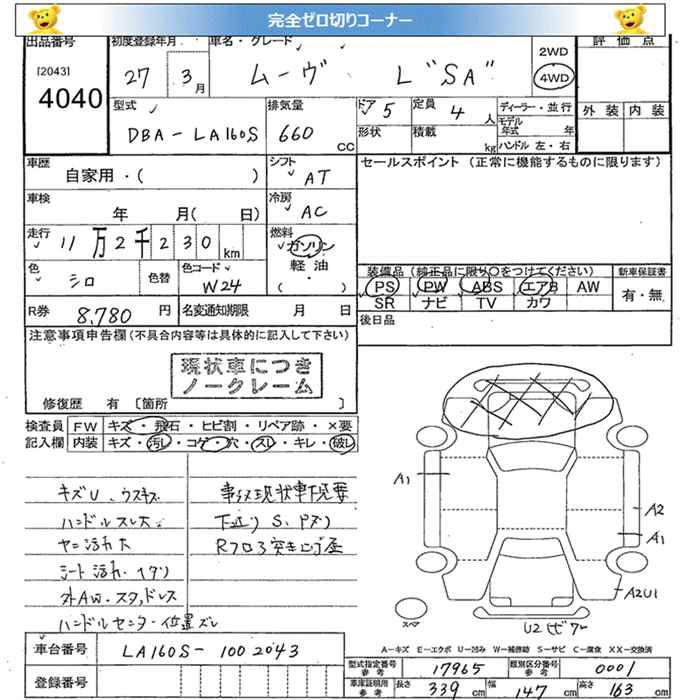 完全ゼロ切りコーナー
出品番号 初度登録年月 車名・グレード 2WD 評価点
[2043] 27 3月 ムーヴ L "SA" 4WD
4040
型式 排気量 ドア 5 定員 4人 ディーラー・並行 外装 内装
DBA-LA160S 660CC 形状 積載 kg モデル年式 年
ハンドル 左・右
車歴 シフト セールスポイント (正常に機能するものに限ります)
自家用・( ) AT
車検 冷房
年 月(日) AC
走行 燃料
11万2千230km ガソリン
軽油
( ・ )
色 シロ 色替 色コード W24
装備品 (純正品に限り○をつけてください) 新車保証書
PS PW ABS エアB AW 有・無
SR ナビ TV カワ
R券 8,780円 名変通知期限 月 日 後日品
注意事項申告欄(不具合内容等は具体的に記入して下さい)
現状車につき
ノークレーム
修復歴 有 [箇所 ]
検査員 FW キズ・飛石・ヒビ割・リペア跡・×要
記入欄 内装 キズ・汚レ・コゲ・穴・スレ・キレ・破レ
キズU、ウスキズ
ハンドルスレ大
ヤニ汚れ大
シート汚れ、
外AW、スタッドレス
ハンドルセンター位置ズレ
事故現状車
下廻りS、
Rフロア突き上げ
A1
A2
A1
A2U1
スペア
U2
A-キズ E-エクボ U-凹み W-補修跡 S-サビ C-腐食 XX-交換済
車台番号 LA160S-1002043
登録番号
型式指定番号 参考 17965 類別区分番号 参考 0001
車庫証明用 参考 長さ 339cm 幅 147cm 高さ 163cm